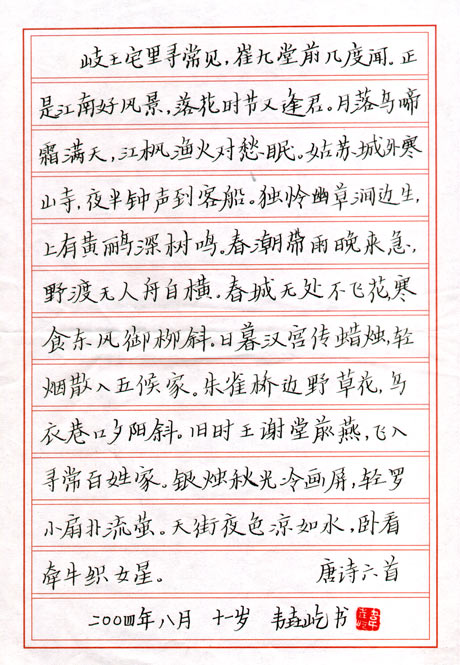 岐王宅里寻常见,崔九堂前几度闻。正
是江南好风景,落花时节又逢君。月落乌啼
霜满天,江枫渔火对愁眠。姑苏城外寒
山寺,夜半钟声到客船。独怜幽草涧边生,
上有黄鹂深树鸣。春潮带雨晚来急,
野渡无人舟自横。春城无处不飞花,寒
食东风御柳斜。日暮汉宫传蜡烛,轻
烟散入五侯家。朱雀桥边野草花,乌
衣巷口夕阳斜。旧时王谢堂前燕,飞入
寻常百姓家。银烛秋光冷画屏,轻罗
小扇扑流萤。天街夜色凉如水,卧看
牵牛织女星。 唐诗六首
二〇〇四年八月 十一岁 韦垚屹书